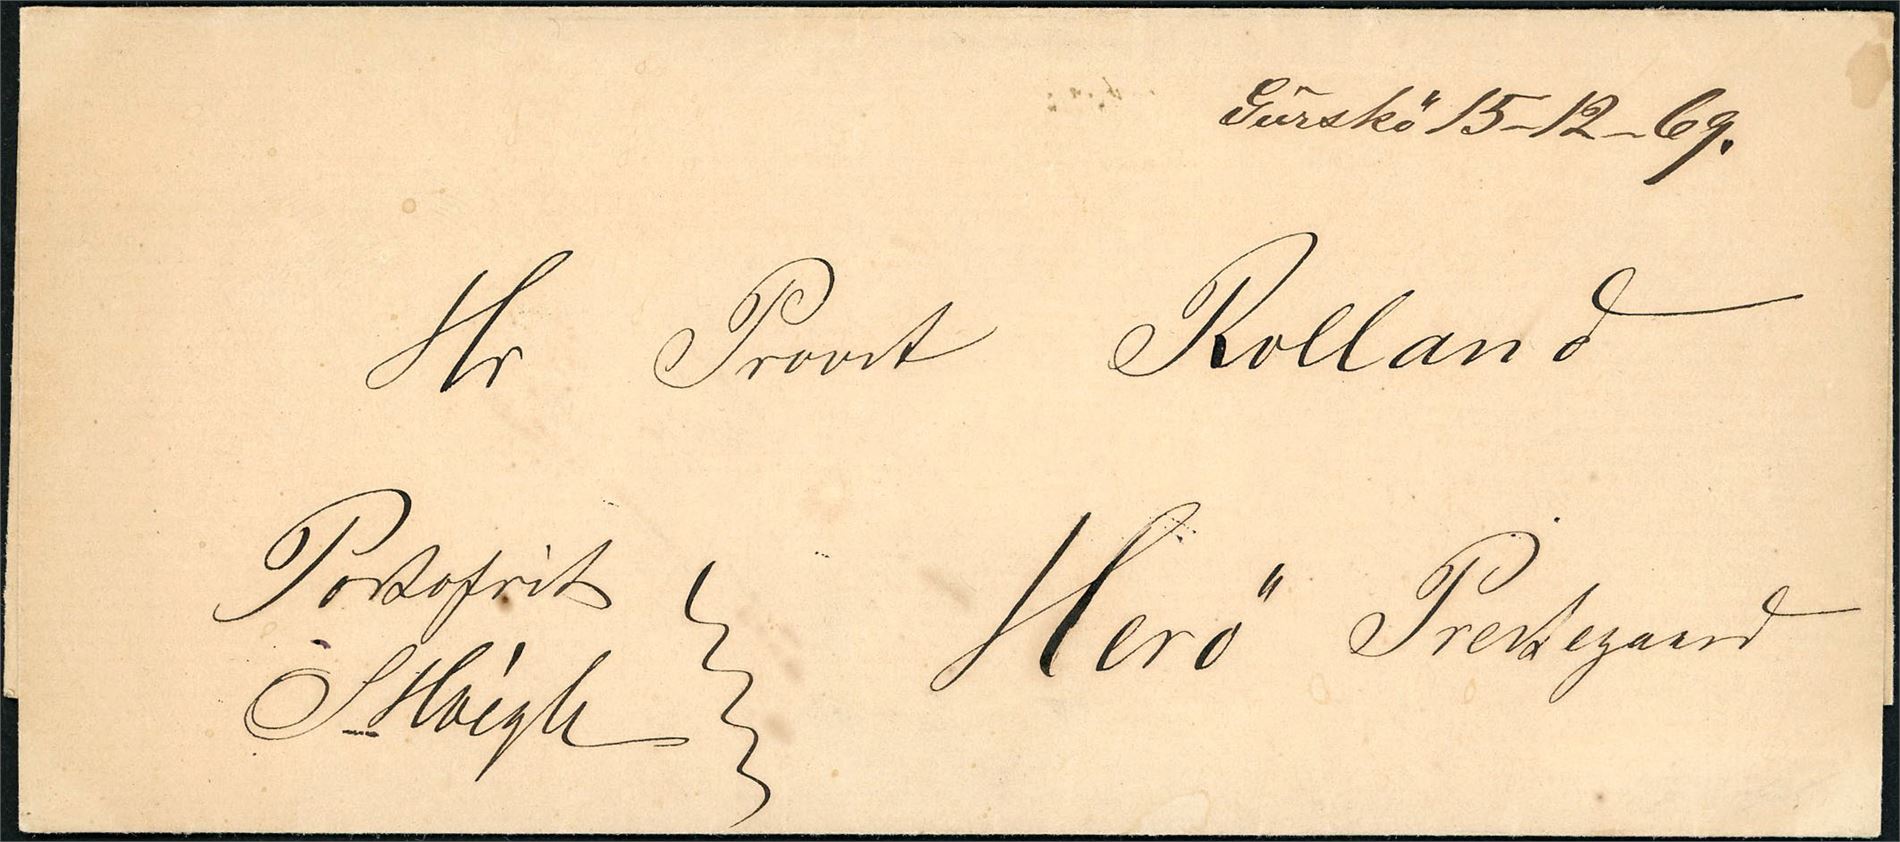 Gurskö 15-12-69.
Hr Provst Rolland
Portofrit
Herö Prestegaard